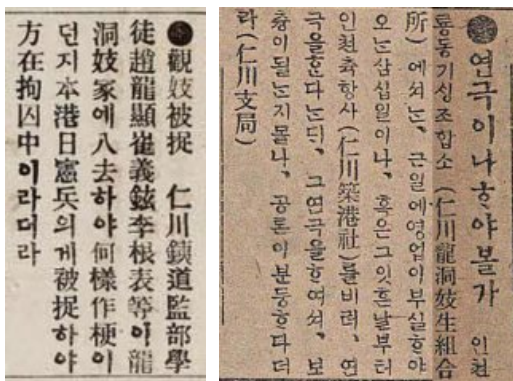 ●觀妓被捉 仁川鐵道監部學
徒趙龍顯崔義鉉李根表等이龍
洞妓家에八去하야何樣作梗이
던지本港日憲兵의게被捉하야
方在拘囚中이라더라
●연극이나ᄒᆞ야볼가 인쳔
룡동기ᄉᆡᆼ조합소(仁川龍洞妓生組合
所)에셔ᄂᆞᆫ、근일에영업이부실ᄒᆞ야
오ᄂᆞᆫ삼십일이나、혹은그잇흔날부터
인쳔츅항샤(仁川築港社)를비러、연
극을ᄒᆞᆫ다ᄂᆞᆫᄃᆡ、그연극을ᄒᆞ여셔、보
츙이될ᄂᆞᆫ지몰나、공론이분등ᄒᆞ다더
라(仁川支局)